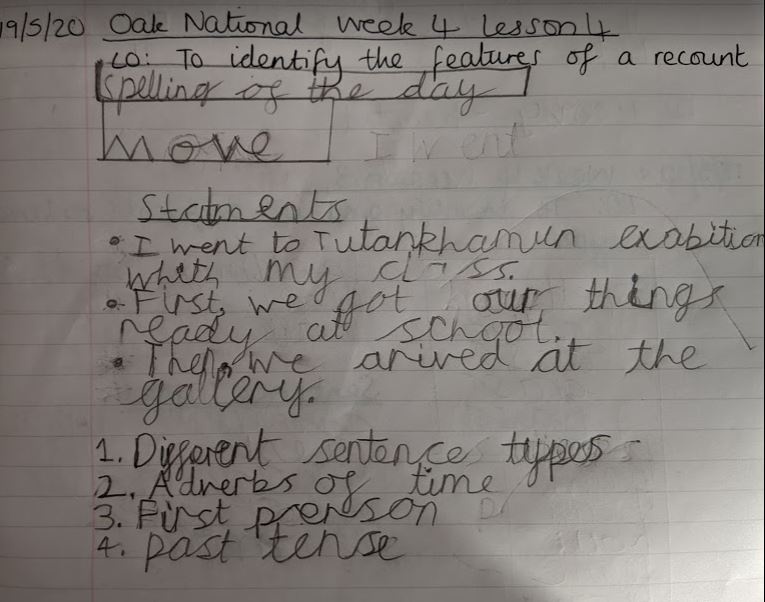 19/5/20 Oak National Week 4 Lesson 4
LO: To identify the features of a recount
Spelling of the day
Move I went
Statments
• I went to Tutankhamun exabition
whith my class.
• First, we got our things
ready at school.
• Then, we arived at the
gallery.
1. Different sentence types
2. Adverbs of time
3. First prerson
4. past tense